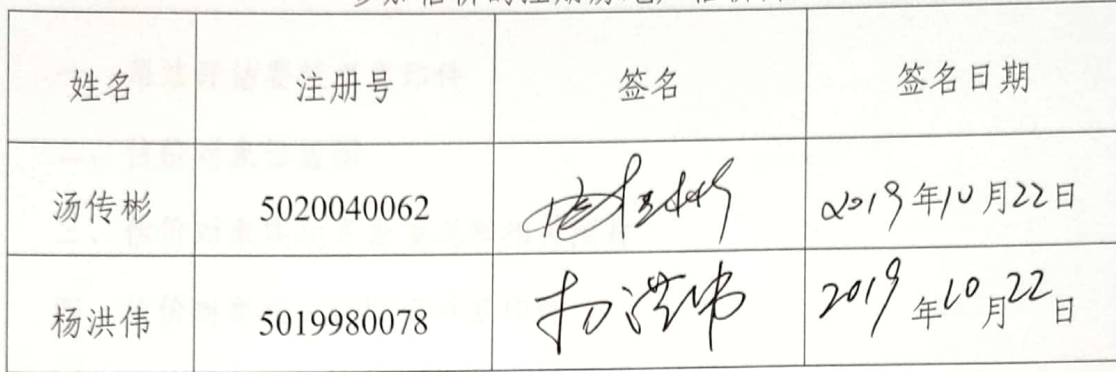 姓名 注册号 签名 签名日期
汤传彬 5020040062 汤传彬 2019年10月22日
杨洪伟 5019980078 杨洪伟 2019年10月22日